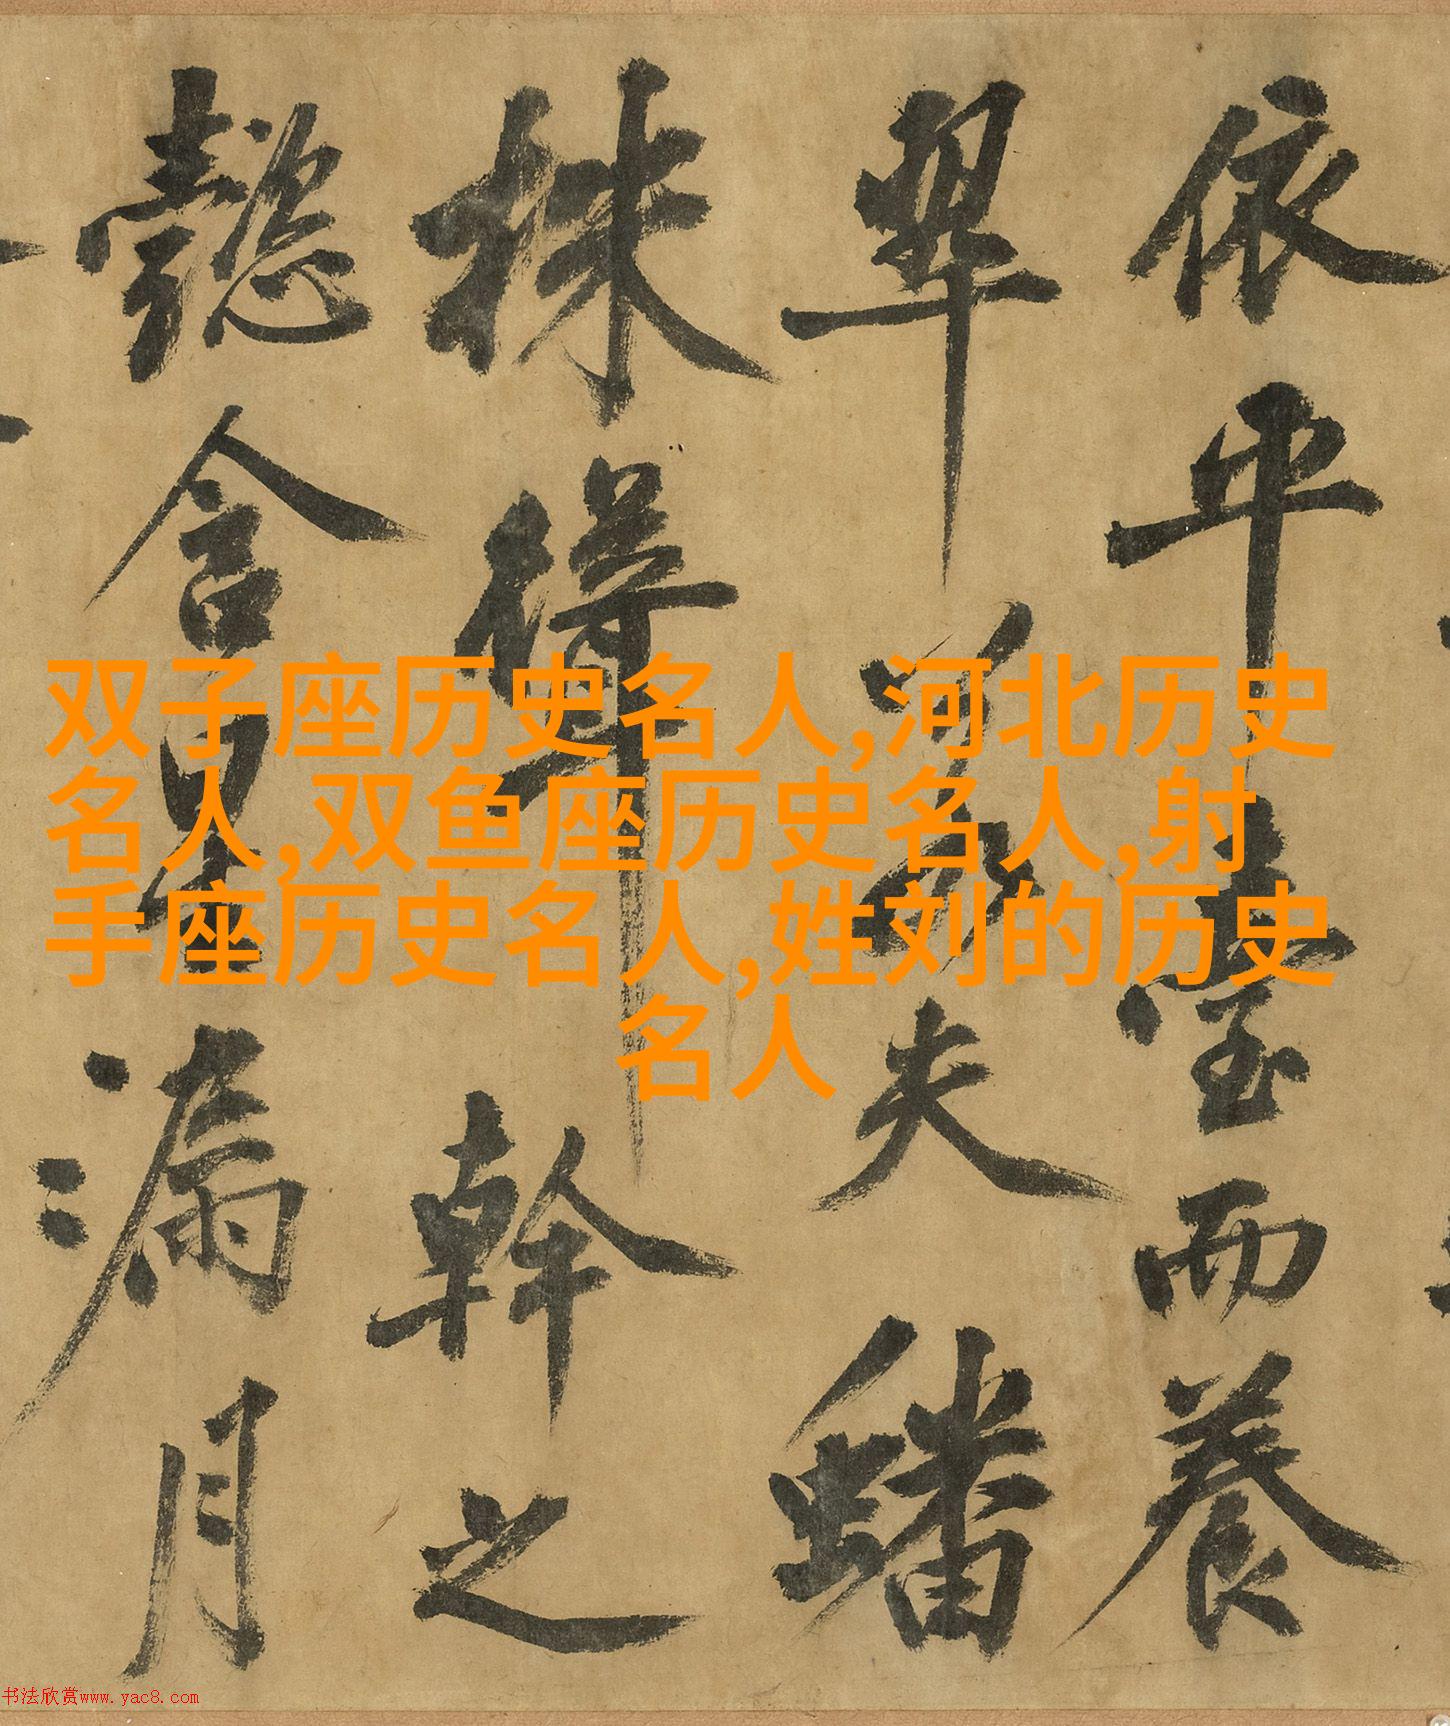 依平臺而養
翠夫蟠
株聳幹之
懿含星漏月
双子座历史名人,河北历史
名人,双鱼座历史名人,射
手座历史名人,姓刘的历史
名人
书法欣赏www.yac8.com